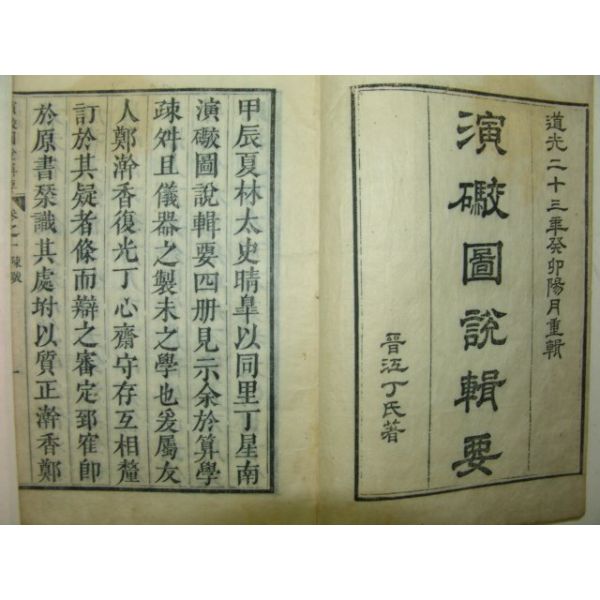 道光二十三年癸卯陽月重輯
演礮圖說輯要
晉江丁氏著
甲辰夏林太史晴皐以同里丁星南
演礮圖說輯要四册見示余於算學
疎舛且儀器之製未之學也爰屬友
人鄭澣香復光丁心齋守存互相釐
訂於其疑者條而辯之審定郅隺卽
於原書栞識其處坿以質正澣香鄭